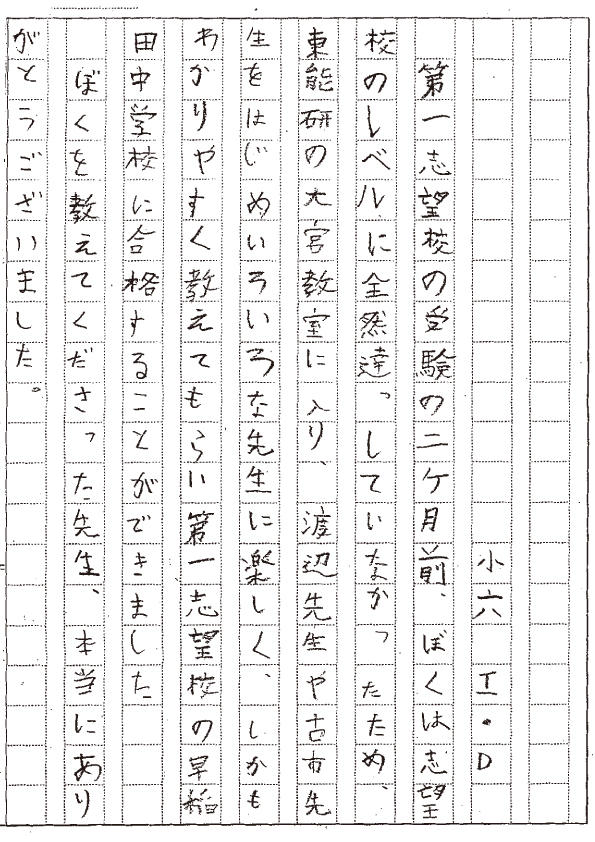 小六 T・D
第一志望校の受験の二ケ月前、ぼくは志望
校のレベルに全然達っしていなかったため、
東能研の大宮教室に入り、渡辺先生や古市先
生をはじめいろいろな先生に楽しく、しかも
わかりやすく教えてもらい第一志望校の早稲
田中学校に合格することができました
ぼくを教えてくださった先生、本当にあり
がとうございました。